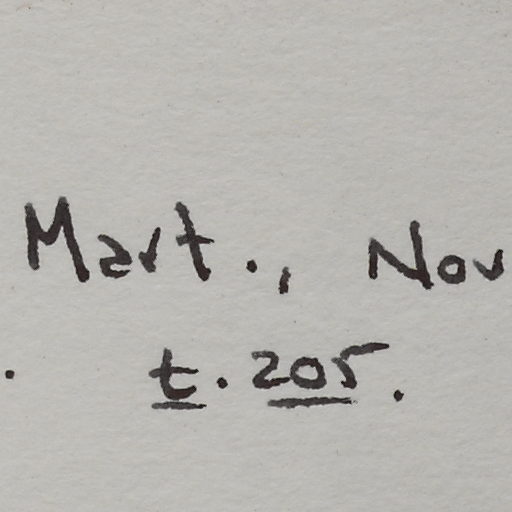 Mart., Nov
. t. 205.